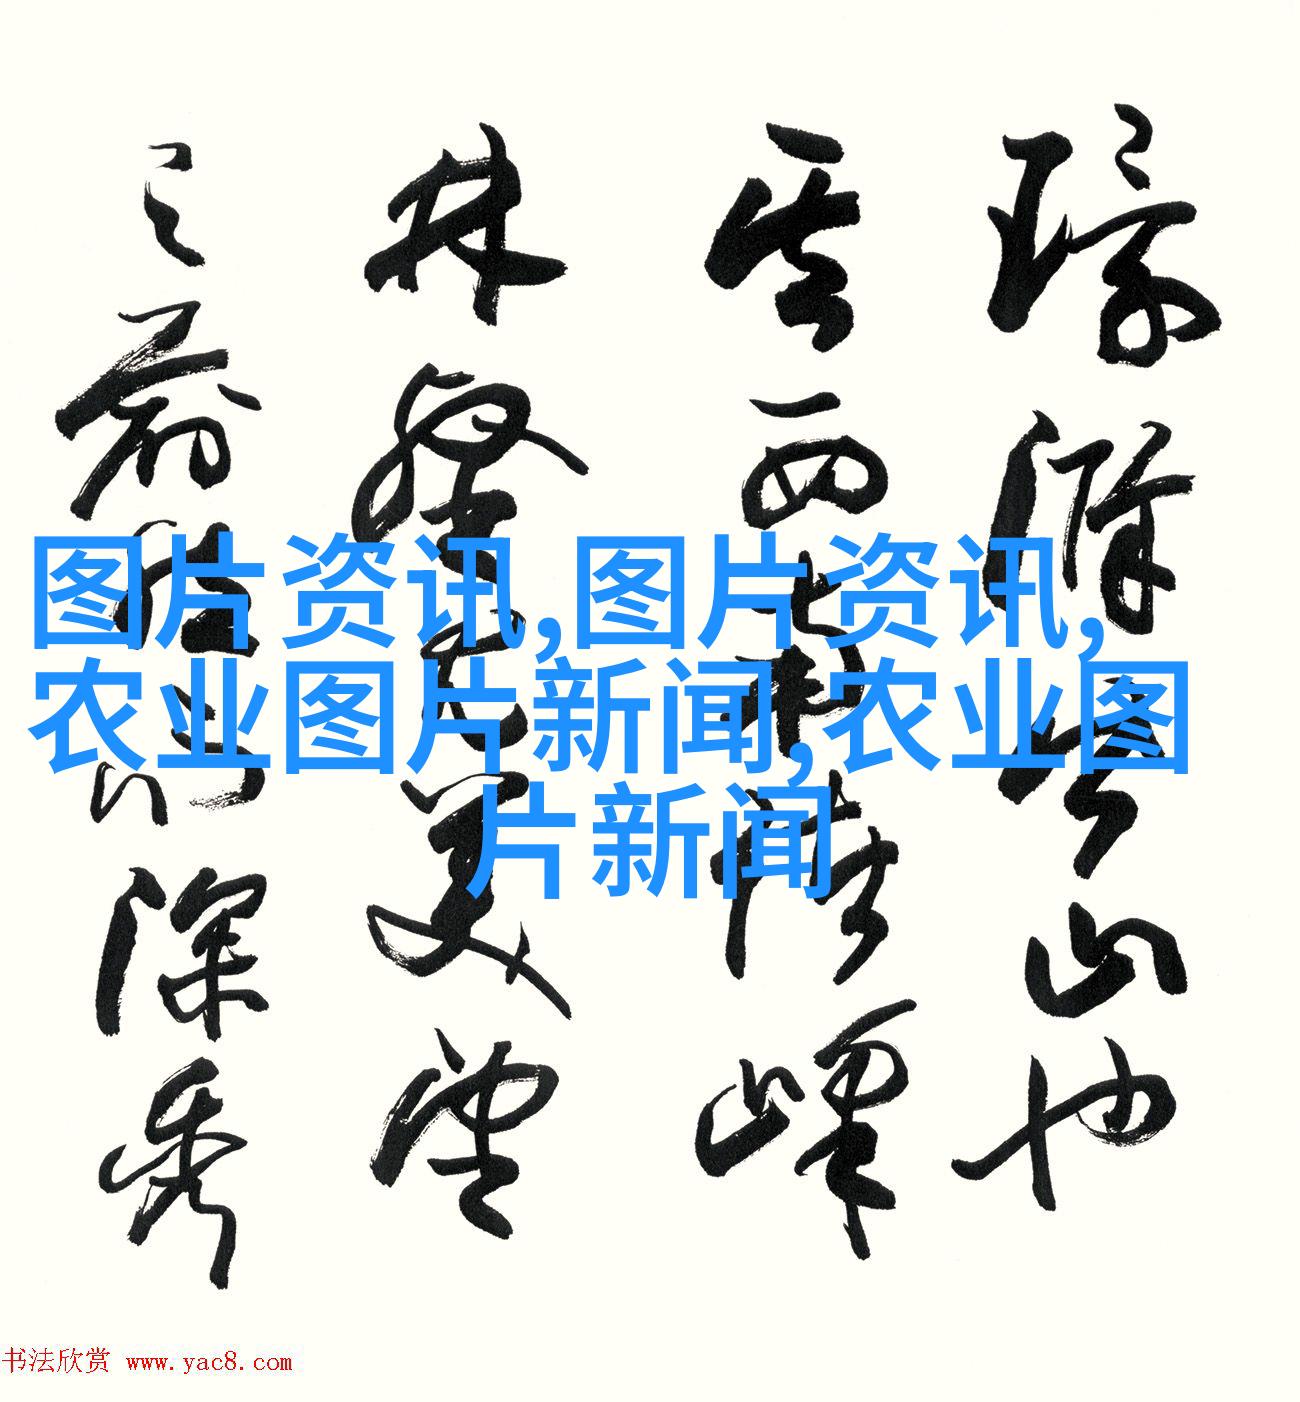 環滁皆山也
其西南諸峰
林壑尤美望
之蔚然而深秀
图片资讯,图片资讯,
农业图片新闻,农业图
片新闻
书法欣赏 www.yac8.com